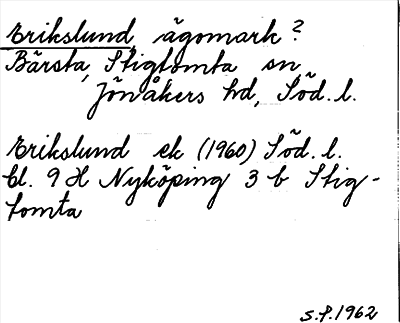 Erikslund, ägomark?
Bärsta, Stigtomta sn,
Jönåkers hd, Söd. l.
Erikslund ek (1960) Söd. l.
bl. 9 H Nyköping 3 b Stig-
tomta
S.P. 1962